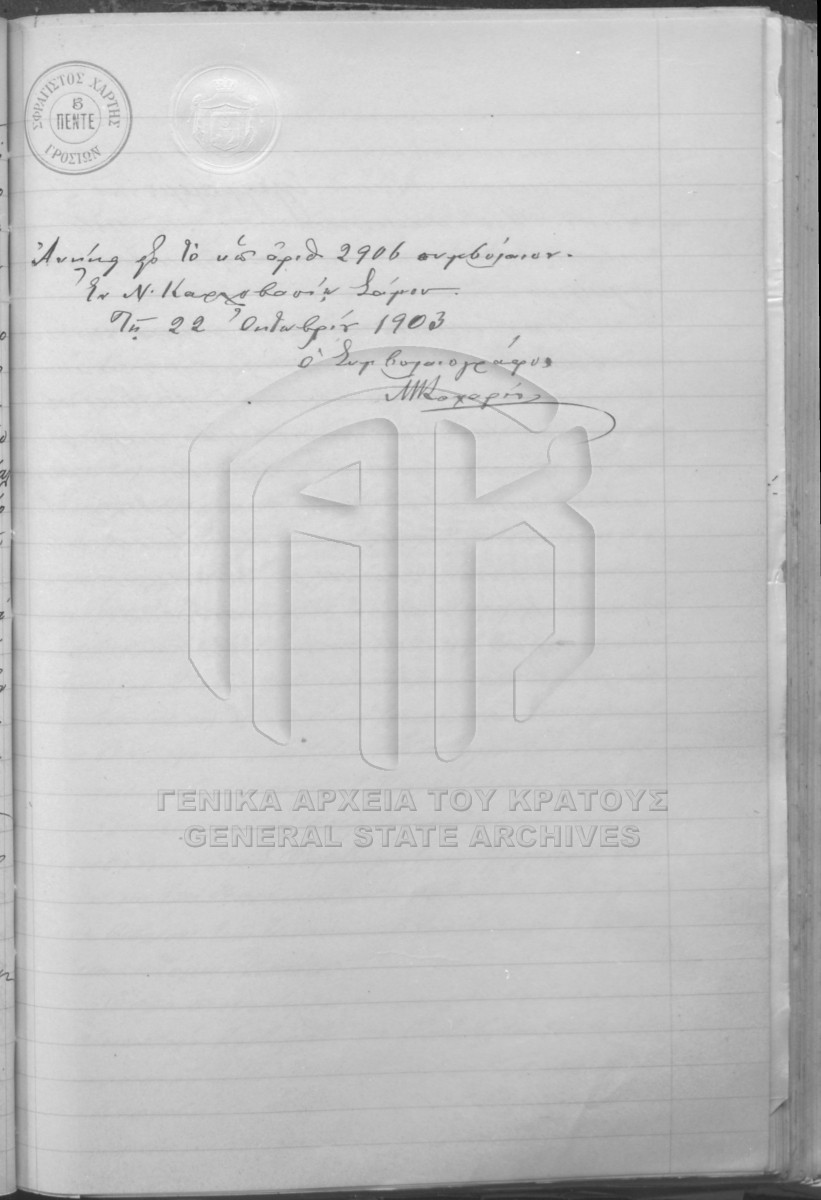 ΣΦΡΑΓΙΣΤΟΣ ΧΑΡΤΗΣ
5
ΠΕΝΤΕ
ΓΡΟΣΙΩΝ
Ἀνήκει εἰς τὸ ὑπ' ἀριθ. 2906 συμβόλαιον.
Ἐν Ν. Καρλοβασίῳ Σάμου.
Τῇ 22 Ὀκτωβρίου 1903
ὁ Συμβολαιογράφος
ΓΕΝΙΚΑ ΑΡΧΕΙΑ ΤΟΥ ΚΡΑΤΟΥΣ
GENERAL STATE ARCHIVES